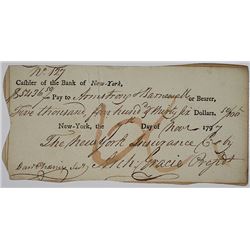 No 127
Cashier of the Bank of New-York,
$5436 50 Pay to Armstrong & Barnewall or Bearer,
Five thousand four hund'd & thirty Six Dollars. 50/100
New-York, the Day of Novr 1797
The New York Insurance Co by
Archd Gracie Presdt